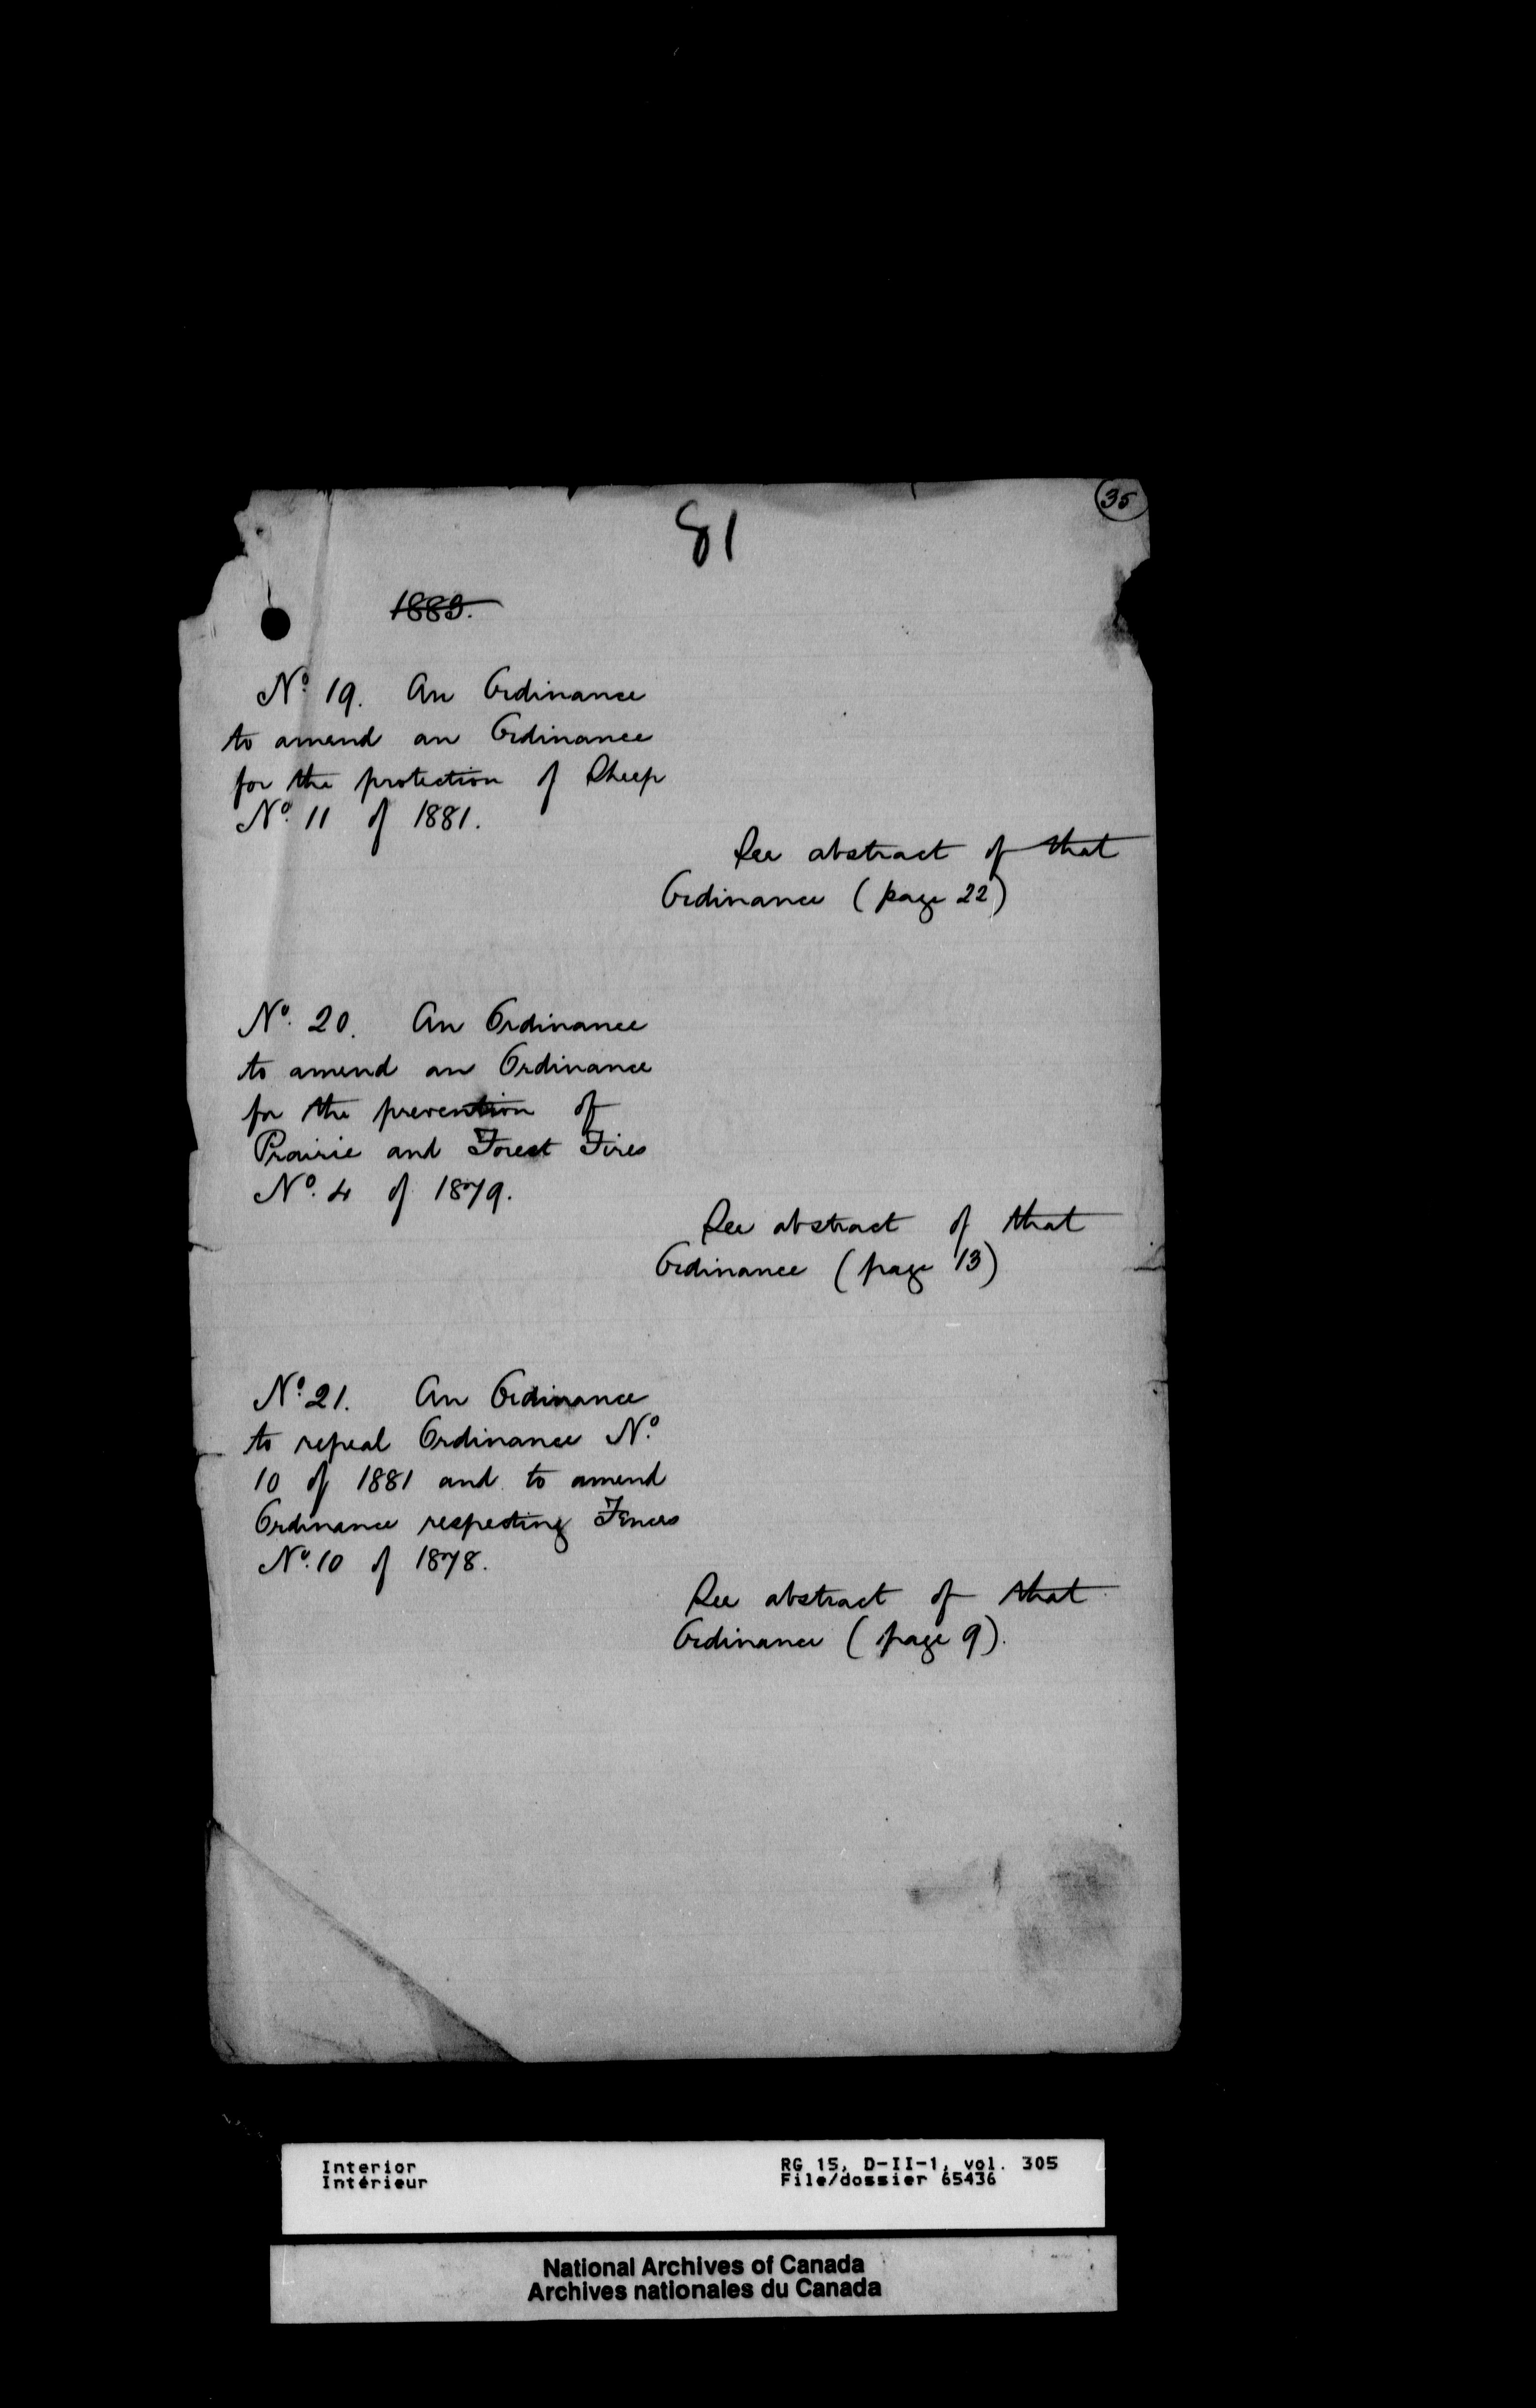 35
81
1883.
No. 19. An Ordinance
to amend an Ordinance
for the protection of Sheep
No. 11 of 1881.
See abstract of that
Ordinance (page 22)
No. 20. An Ordinance
to amend an Ordinance
for the prevention of
Prairie and Forest Fires
No. 4 of 1879.
See abstract of that
Ordinance (page 13)
No. 21. An Ordinance
to repeal Ordinance No.
10 of 1881 and to amend
Ordinance respecting Fences
No. 10 of 1878.
See abstract of that
Ordinance (page 9).
Interior
Intérieur
RG 15, D-II-1, vol. 305
File/dossier 65436
National Archives of Canada
Archives nationales du Canada